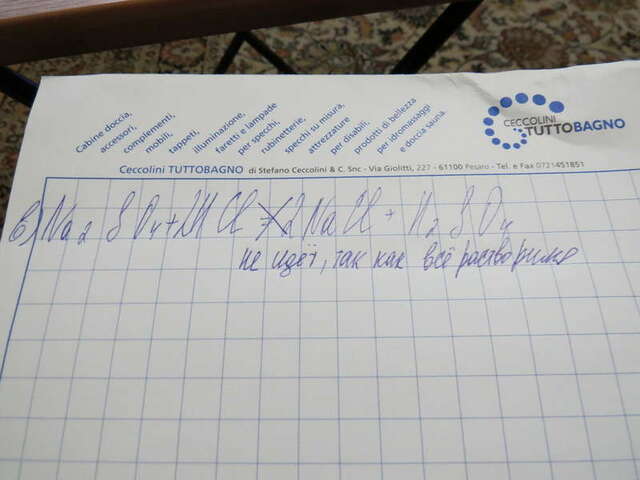 Cabine doccia,
accessori,
complementi,
mobili,
tappeti,
illuminazione,
faretti e lampade
per specchi,
rubinetterie,
specchi su misura,
attrezzature
per disabili,
prodotti di bellezza
per idromassaggi
e doccia sauna.
CECCOLINI
TUTTOBAGNO
Ceccolini TUTTOBAGNO di Stefano Ceccolini & C. Snc - Via Giolitti, 227 - 61100 Pesaro - Tel. e Fax 0721451851
в) Na₂SO₄ + 2HCl ≠ 2NaCl + H₂SO₄
не идёт, так как всё растворимо